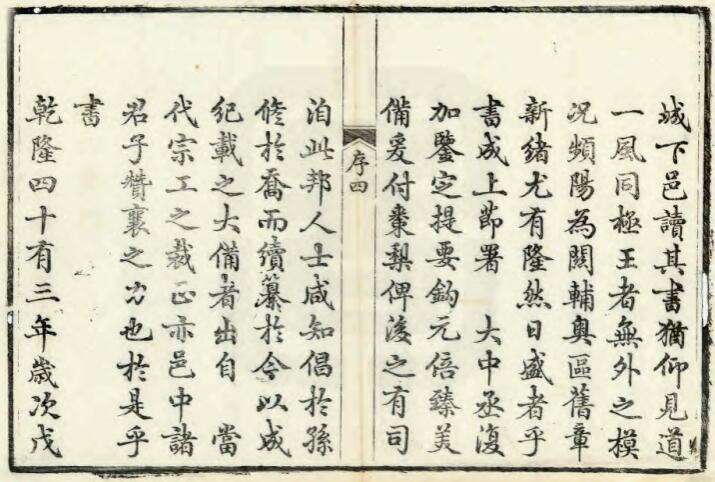 城下邑讀其書猶仰見道
一風同極王者無外之模
況頻陽為關輔奥區舊章
新緒尤有隆然日盛者乎
書成上節署 大中丞復
加鑒定提要鈎元倍臻美
備爰付棗梨俾後之有司
序四
洎此邦人士咸知倡於孫
修於喬而續纂於今以成
紀載之大備者出自 當
代宗工之裁正亦邑中諸
君子贊襄之力也於是乎
書
乾隆四十有三年歲次戊